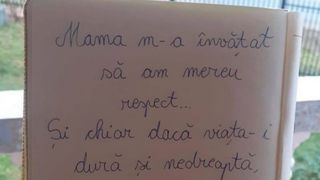 Mama m-a învățat
să am mereu
respect...
Și chiar dacă viața-i
dură și nedreaptă,